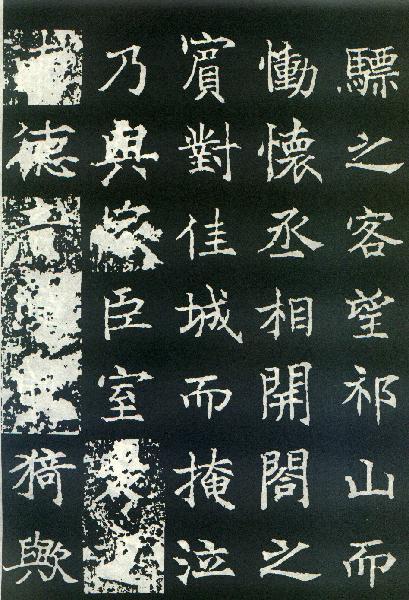 驃之客望祁山而
慟懷丞相開閤之
賓對佳城而掩泣
乃與家臣室
德猗歟